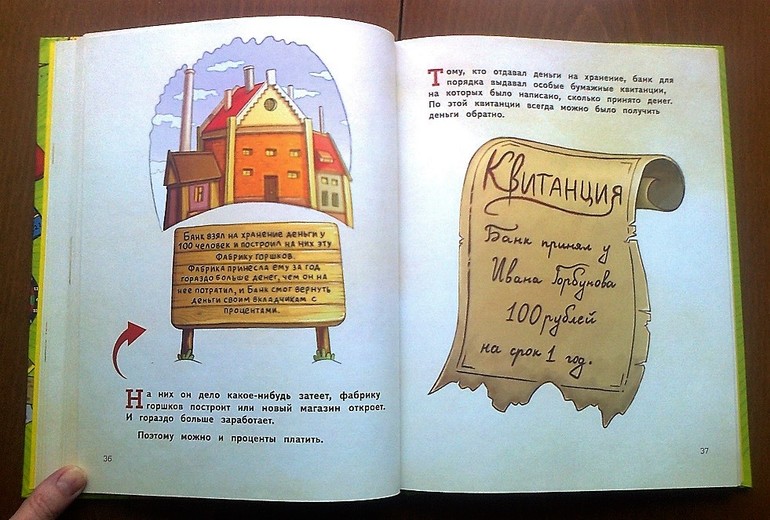 Банк взял на хранение деньги у
100 человек и построил на них эту
фабрику горшков.
Фабрика принесла ему за год
гораздо больше денег, чем он на
нее потратил, и Банк смог вернуть
деньги своим вкладчикам с
процентами.
На них он дело какое-нибудь затеет, фабрику
горшков построит или новый магазин откроет.
И гораздо больше заработает.
Поэтому можно и проценты платить.
36
Тому, кто отдавал деньги на хранение, банк для
порядка выдавал особые бумажные квитанции,
на которых было написано, сколько принято денег.
По этой квитанции всегда можно было получить
деньги обратно.
Квитанция
Банк принял у
Ивана Горбунова
100 рублей
на срок 1 год.
37